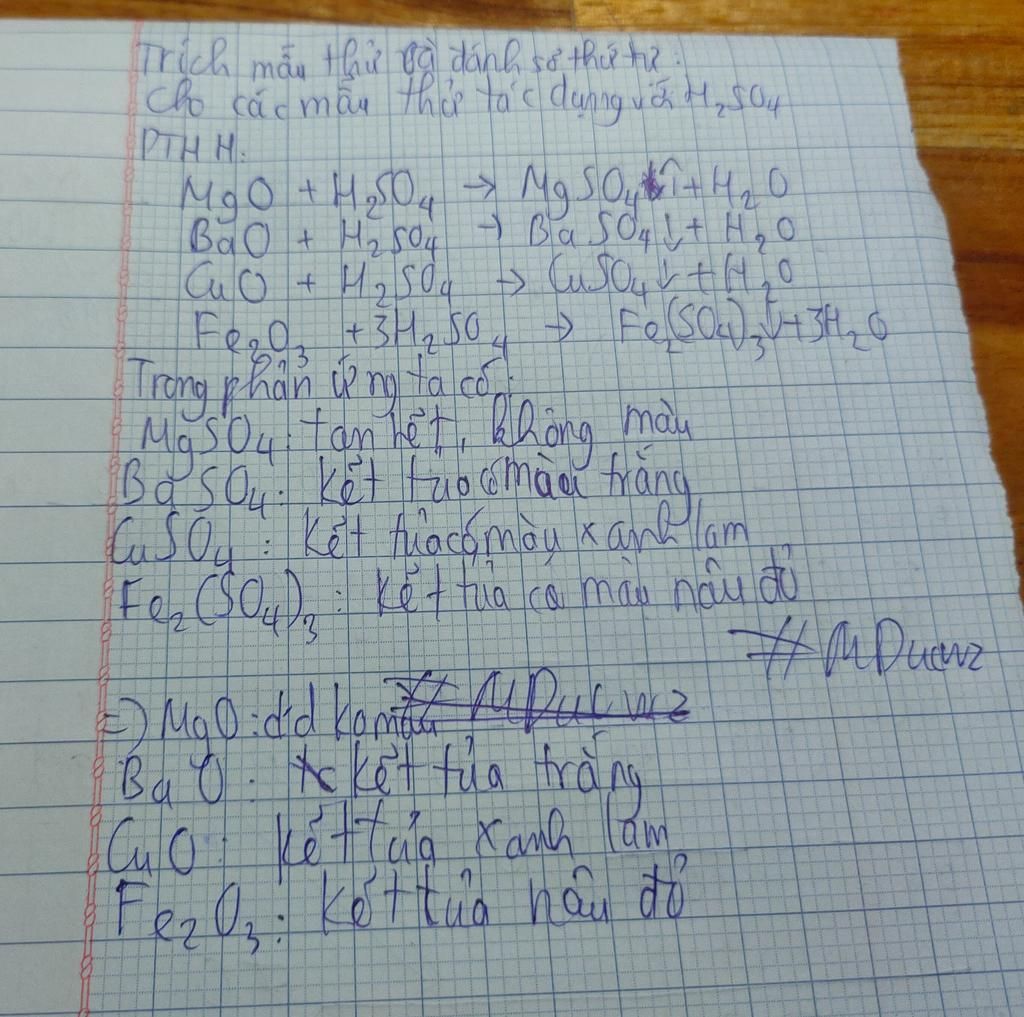 Trích mẫu thử và đánh số thứ tự.
Cho các mẫu thử tác dụng với H₂SO₄
PTHH.
MgO + H₂SO₄ → MgSO₄ + H₂O
BaO + H₂SO₄ → BaSO₄↓ + H₂O
CuO + H₂SO₄ → CuSO₄↓ + H₂O
Fe₂O₃ + 3H₂SO₄ → Fe₂(SO₄)₃↓ + 3H₂O
Trong phản ứng ta có:
MgSO₄: tan hết, không màu
BaSO₄: Kết tủa có màu trắng
CuSO₄: Kết tủa có màu xanh lam
Fe₂(SO₄)₃: Kết tủa có màu nâu đỏ
#MDucwz
=) MgO: d²d ko màu #MDucwz
BaO: Kết tủa trắng
CuO: Kết tủa xanh lam
Fe₂O₃: Kết tủa nâu đỏ